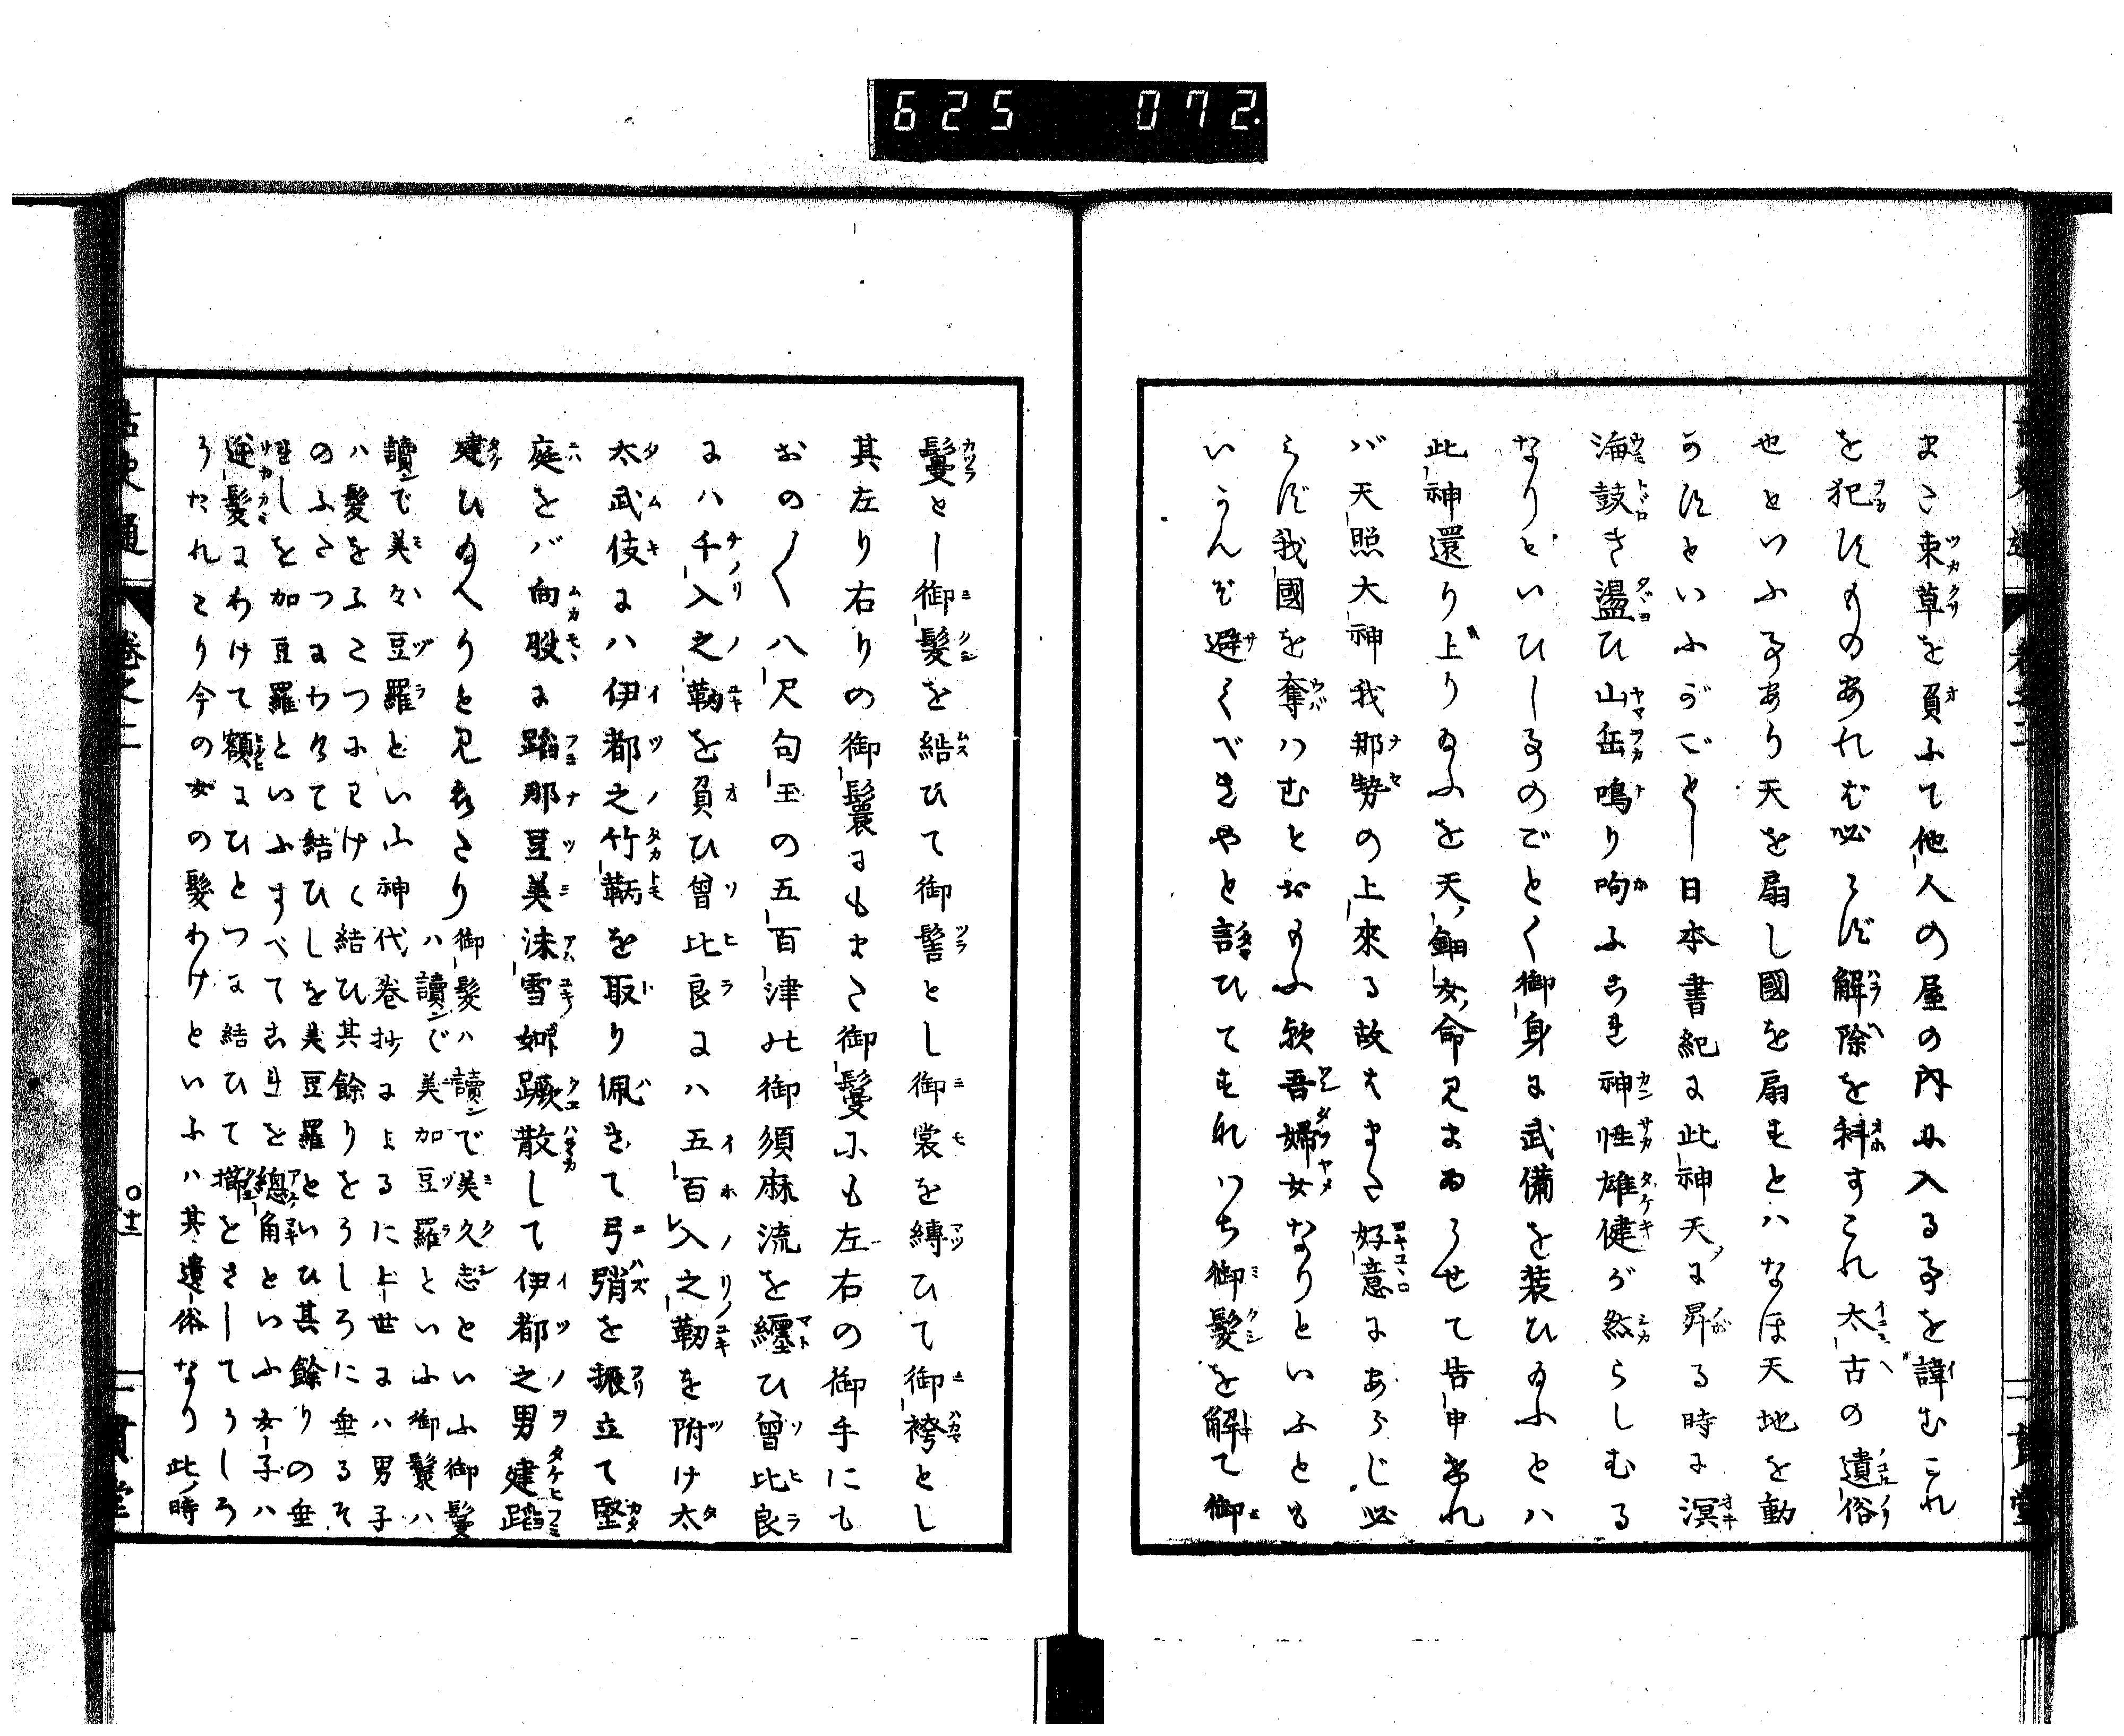 625 072.
また束草を負ふて他人の屋の内に入る事を諱むこれ
を犯すものあれば必らず解除を科すこれ太古の遺俗
せといふ事あり天を扇し國を扇すとハなほ天地を動
かすといふがごとし日本書紀に此神天に昇る時に溟
海鼓き盪ひ山岳鳴り呴ふこれ神性雄健が然らしむる
なりといひし事のごとく御身に武備を装ひ給ふとハ
此神還り上り給ふを天ノ鈿女ノ命見まゐらせて告申され
バ天照大神我那勢の上來る故はまた好意にあらじ必
らず我國を奪ハむとおもふ欲吾婦女なりといふとも
いかんぞ避くべきやと詔ひてすれハち御髮を解て御
鬘とし御髮を結ひて御髻とし御裳を縛ひて御袴とし
其左り右りの御鬟にもまた御鬘にも左右の御手にも
おの〱八尺句玉の五百津の御須麻流を纒ひ曾比良
にハ千入之靫を負ひ曾比良にハ五百入之靫を附け太
太武伎にハ伊都之竹鞆を取り佩きて弓弰を振立て堅
庭をバ向股に蹈那豆美沫雪如蹶散して伊都之男建蹈
建ひ給へりと見えたり
御髮ハ讀ンで美久志といふ御鬘
ハ讀ンで美加豆羅といふ御鬟ハ
讀ンで美々豆羅といふ神代卷抄によるに上世にハ男子
ハ髮をふたつにわけて結ひ其餘りをうしろに垂るそ
のふたつにわけて結ひしを美豆羅といひ其餘りの垂
しを加豆羅といふすべてこれを總角といふ女子ハ
逆髮にわけて額にひとつに結ひて櫛をさしてうしろ
うたれたり今の女の髮わけといふハ其遺俗なり此ノ時
古史通
卷之二
〇十二
一貫堂